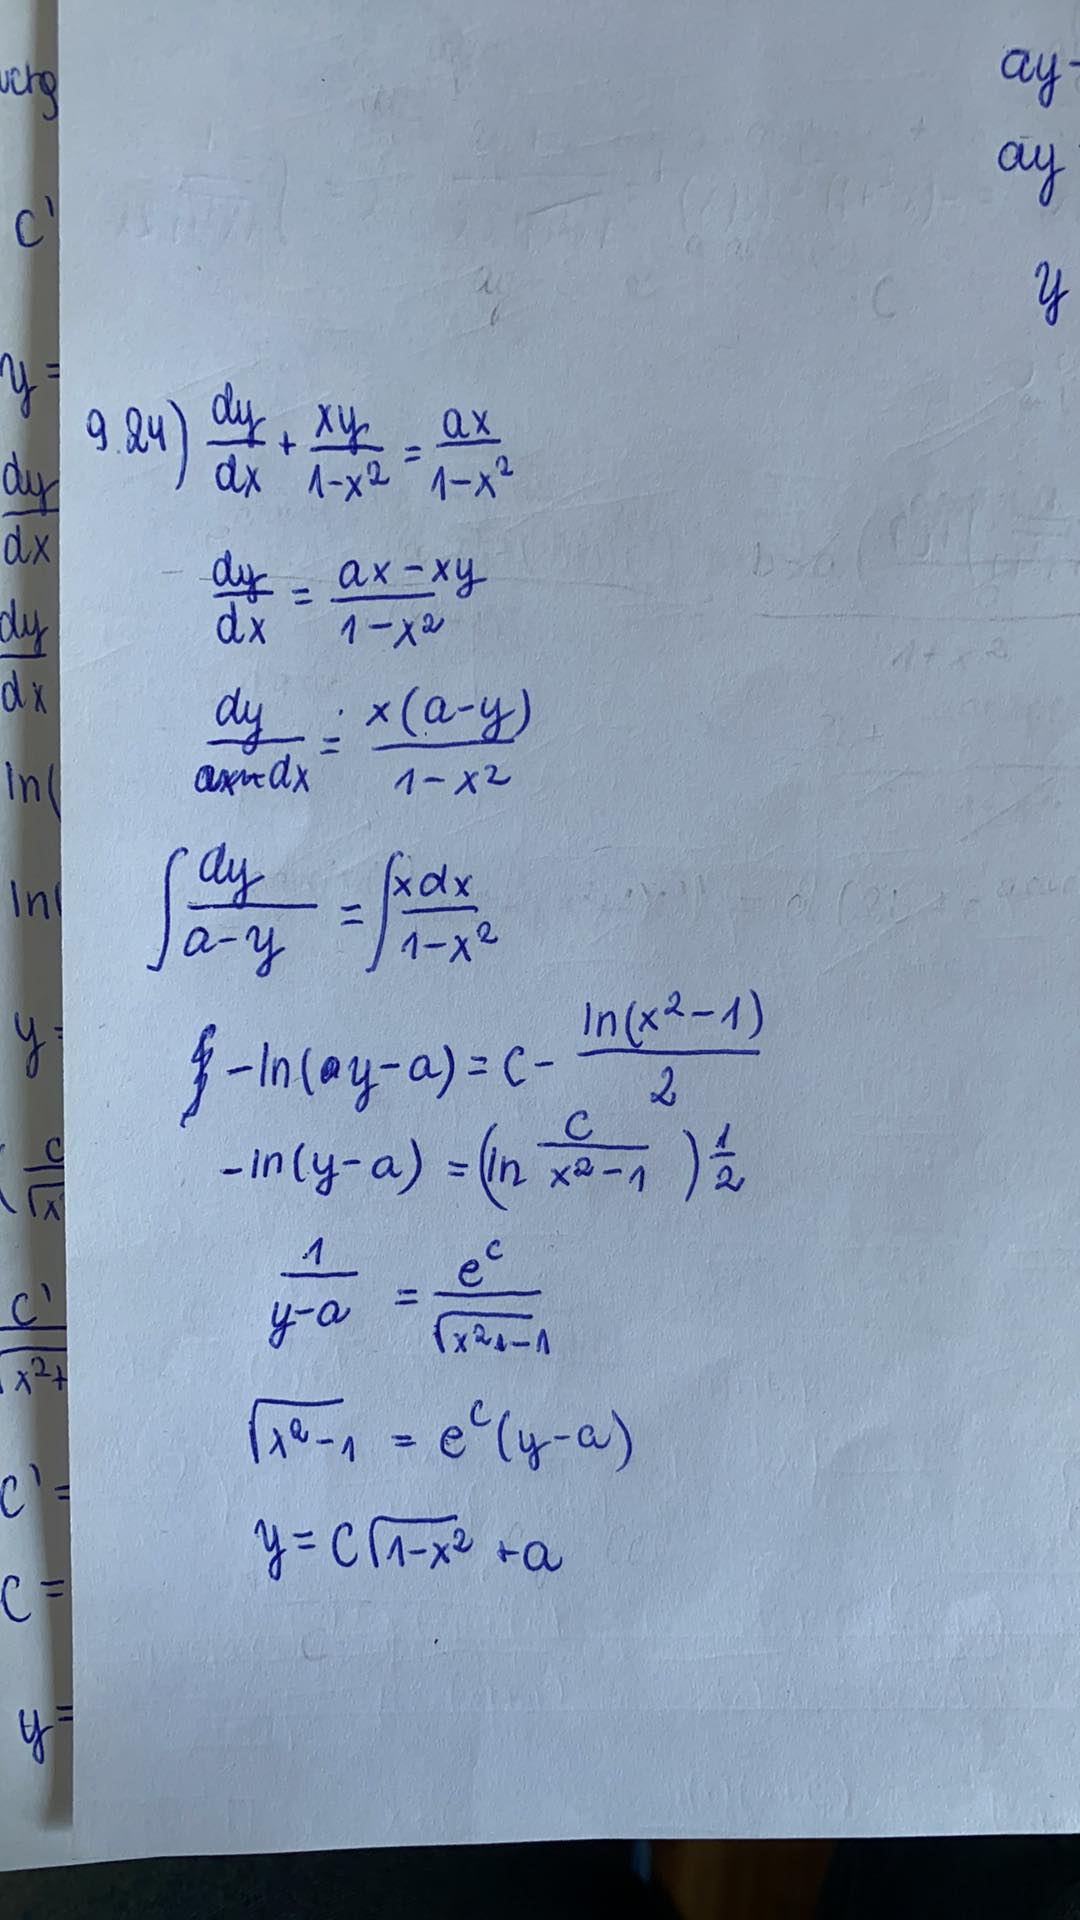 ucrg
c'
y=
dy/dx
dy/dx
ln(
ln(
y=
c/√x
c'/√x²+
c'=
c=
y=
ay-
ay
y
9.24) dy/dx + xy/1-x² = ax/1-x²
dy/dx = ax-xy/1-x²
dy/dx = x(a-y)/1-x²
∫ dy/a-y = ∫ xdx/1-x²
-ln(y-a) = c - ln(x²-1)/2
-ln(y-a) = (ln c/x²-1) 1/2
1/y-a = e^c/√x²-1
√x²-1 = e^c(y-a)
y = C√1-x² +a